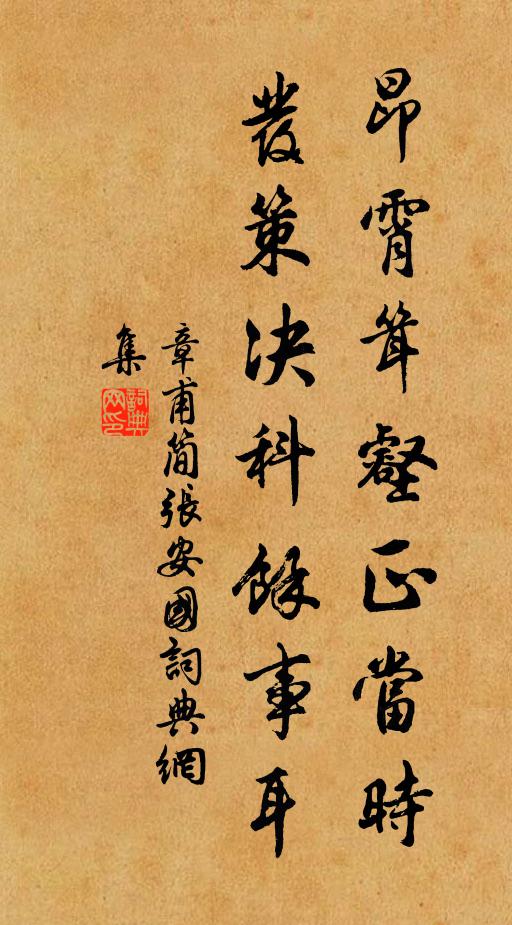 昂霄耸壑正當時
發策决科餘事耳
章甫简張安國詞典網
集
詞典
网印